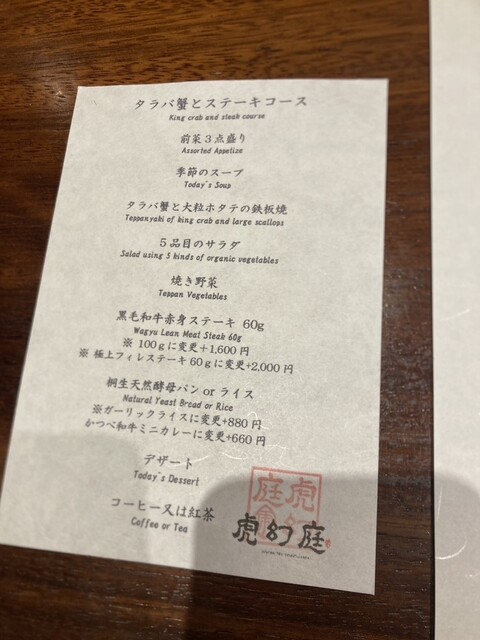 タラバ蟹とステーキコース
King crab and steak course
前菜３点盛り
Assorted Appetize
季節のスープ
Today's Soup
タラバ蟹と大粒ホタテの鉄板焼
Teppanyaki of king crab and large scallops
５品目のサラダ
Salad using 5 kinds of organic vegetables
焼き野菜
Teppan Vegetables
黒毛和牛赤身ステーキ 60g
Wagyu Lean Meat Steak 60g
※ 100gに変更+1,600 円
※ 極上フィレステーキ 60gに変更+2,000 円
桐生天然酵母パン or ライス
Natural Yeast Bread or Rice
※ガーリックライスに変更+880 円
かつべ和牛ミニカレーに変更+660 円
デザート
Today's Dessert
コーヒー又は紅茶
Coffee or Tea
虎幻庭
虎幻庭